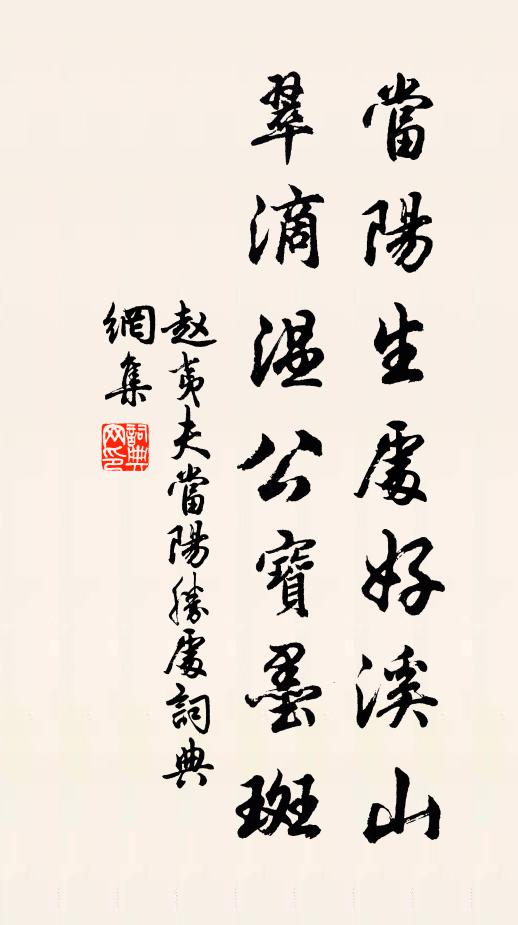 當陽生處好溪山
翠滴温公寶墨斑
赵夷夫當陽勝處詞典
網集
詞典
网印